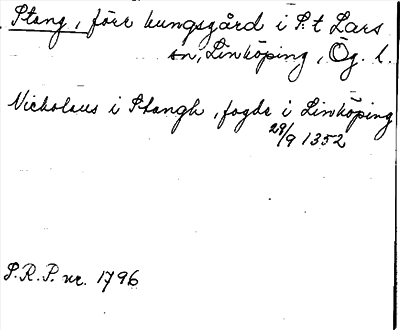 Stang, förr kungsgård i S:t Lars
sn, Linköping, Ög. l.
Nicholaus i Stangh, fogde i Linköping
29/9 1352
S.R.P. nr. 1796